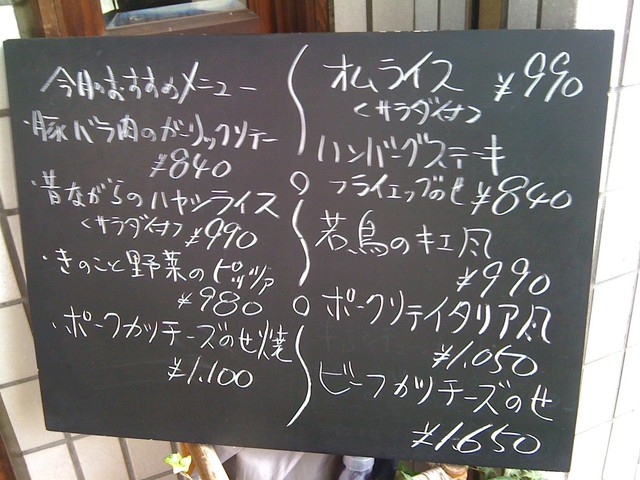 今月のおすすめメニュー
・豚バラ肉のガーリックソテー
¥840
・昔ながらのハヤシライス
<サラダ付>
¥990
・きのこと野菜のピッツァ
¥980
・ポークカツチーズのせ焼
¥1.100
オムライス ¥990
<サラダ付>
ハンバーグステーキ
フライエッグのせ ¥840
若鳥のキエフ風
¥990
ポークソテイタリア風
¥1.050
ビーフカツチーズのせ
¥1.650